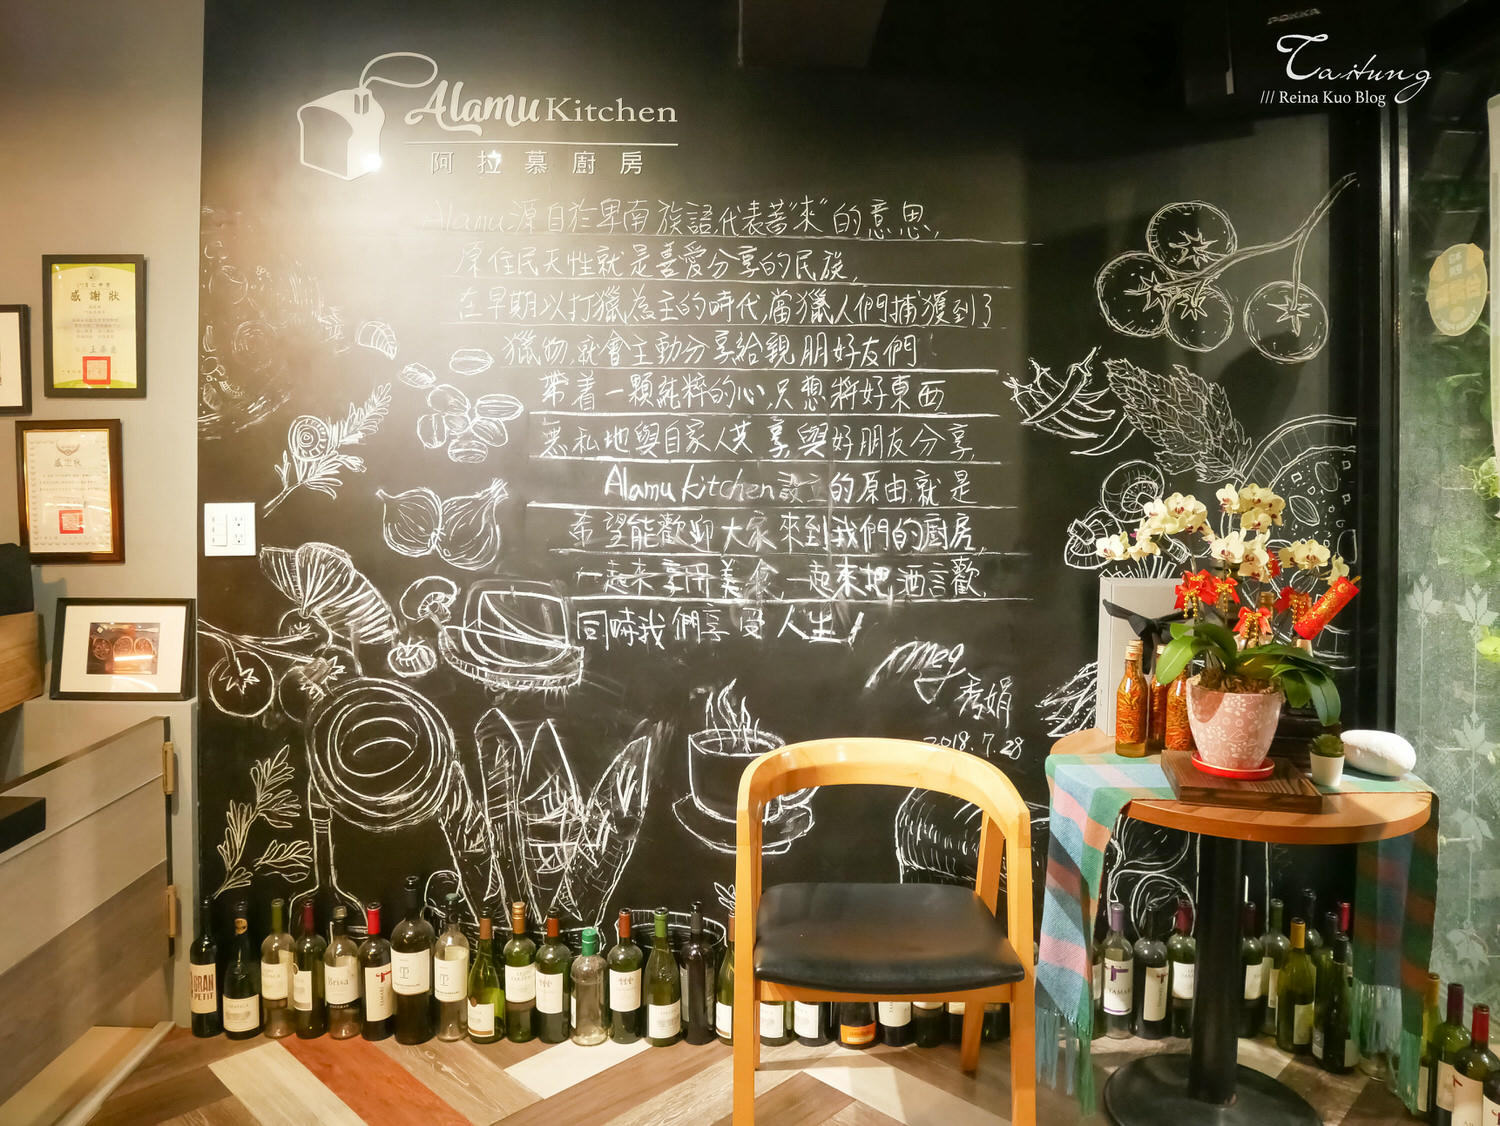 Taitung
/// Reina Kuo Blog
POKKA
Alamu Kitchen
阿拉慕廚房
Alamu源自於卑南族語,代表著"來"的意思,
原住民天性就是喜愛分享的民族,
在早期以打獵為主的時代,當獵人們捕獲到了
獵物,就會主動分享給親朋好友們
帶着一顆純粹的心,只想將好東西
無私地與自家人共享,與好朋友分享,
Alamu kitchen設立的原由,就是
希望能歡迎大家來到我們的廚房,
一起來享用美食,一起來把酒言歡,
同時我們享受人生!
Meg
秀娟
2018.7.28
感謝狀
感謝狀
BRAN
PETIT
Brisa
TAMARI